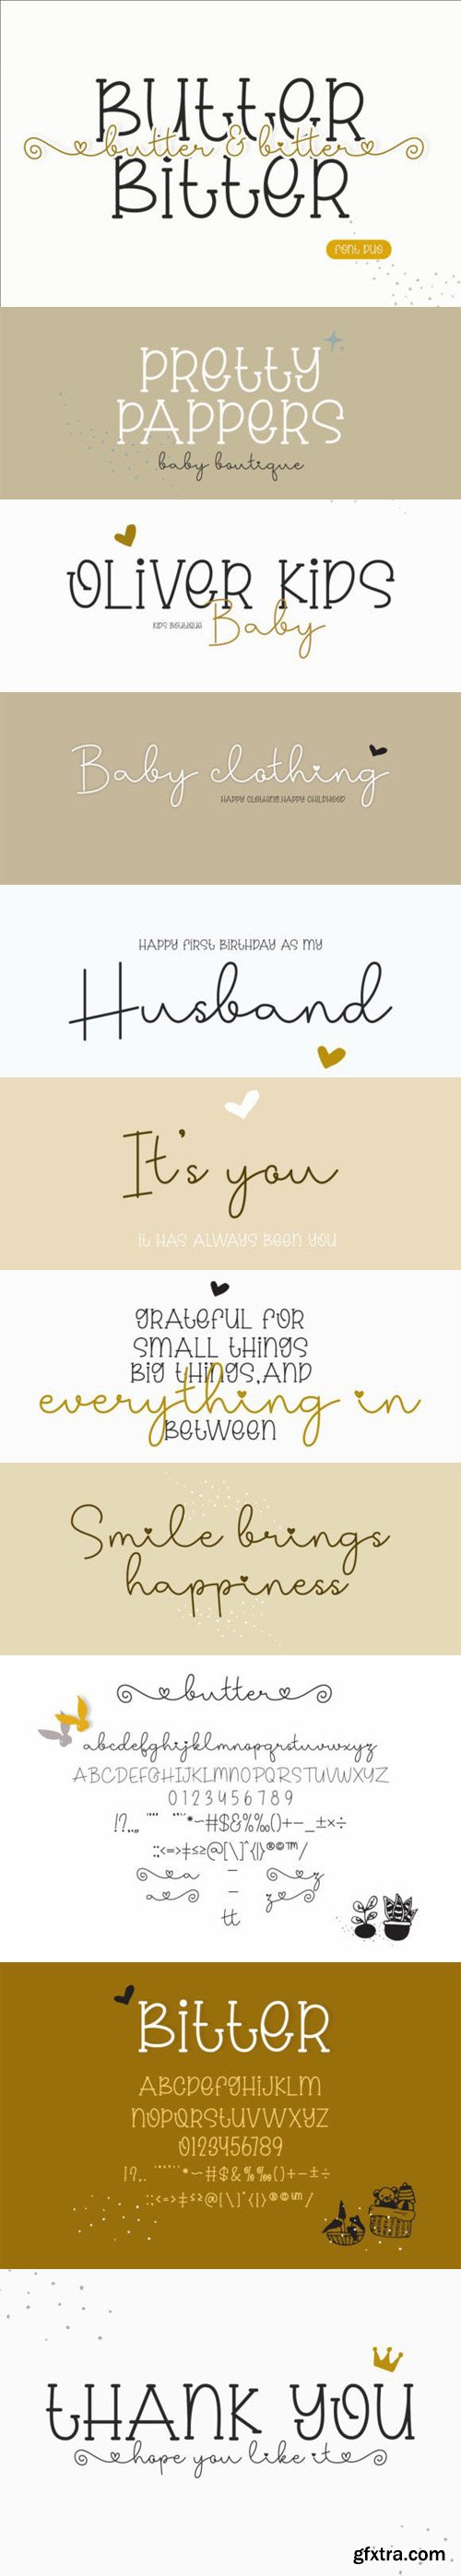 BUtteR
butter & bitter
BitteR
font DUO
PRettY
PAPPeRS
baby boutique
OLiVeR KiDS
KiDS BOUtiQUe
Baby
Baby clothing
HAPPY CLOtHiNG,HAPPY CHiLDHOOD
HAPPY fiRSt BiRtHDAY AS MY
Husband
It's you
it HAS ALWAYS Been YOU
GRAtefUL fOR
SMALL tHiNGS
BiG tHiNGS,AND
everything in
BetWeeN
Smile brings
happiness
butter
abcdefghijklmnopqrstuvwxyz
ABCDEFGHIJKLMNOPQRSTUVWXYZ
0123456789
tt
BitteR
ABCDefGHiJKLM
NOPQRStUVWXYZ
0123456789
tHANK YOU
hope you like it
gfxtra.com